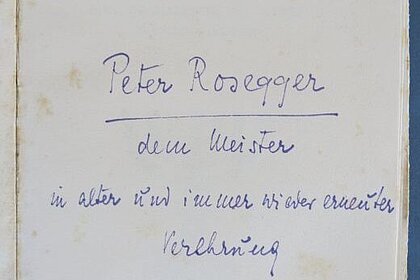 Peter Rosegger
dem Meister
in alter und immer wieder erneuter
Verehrung